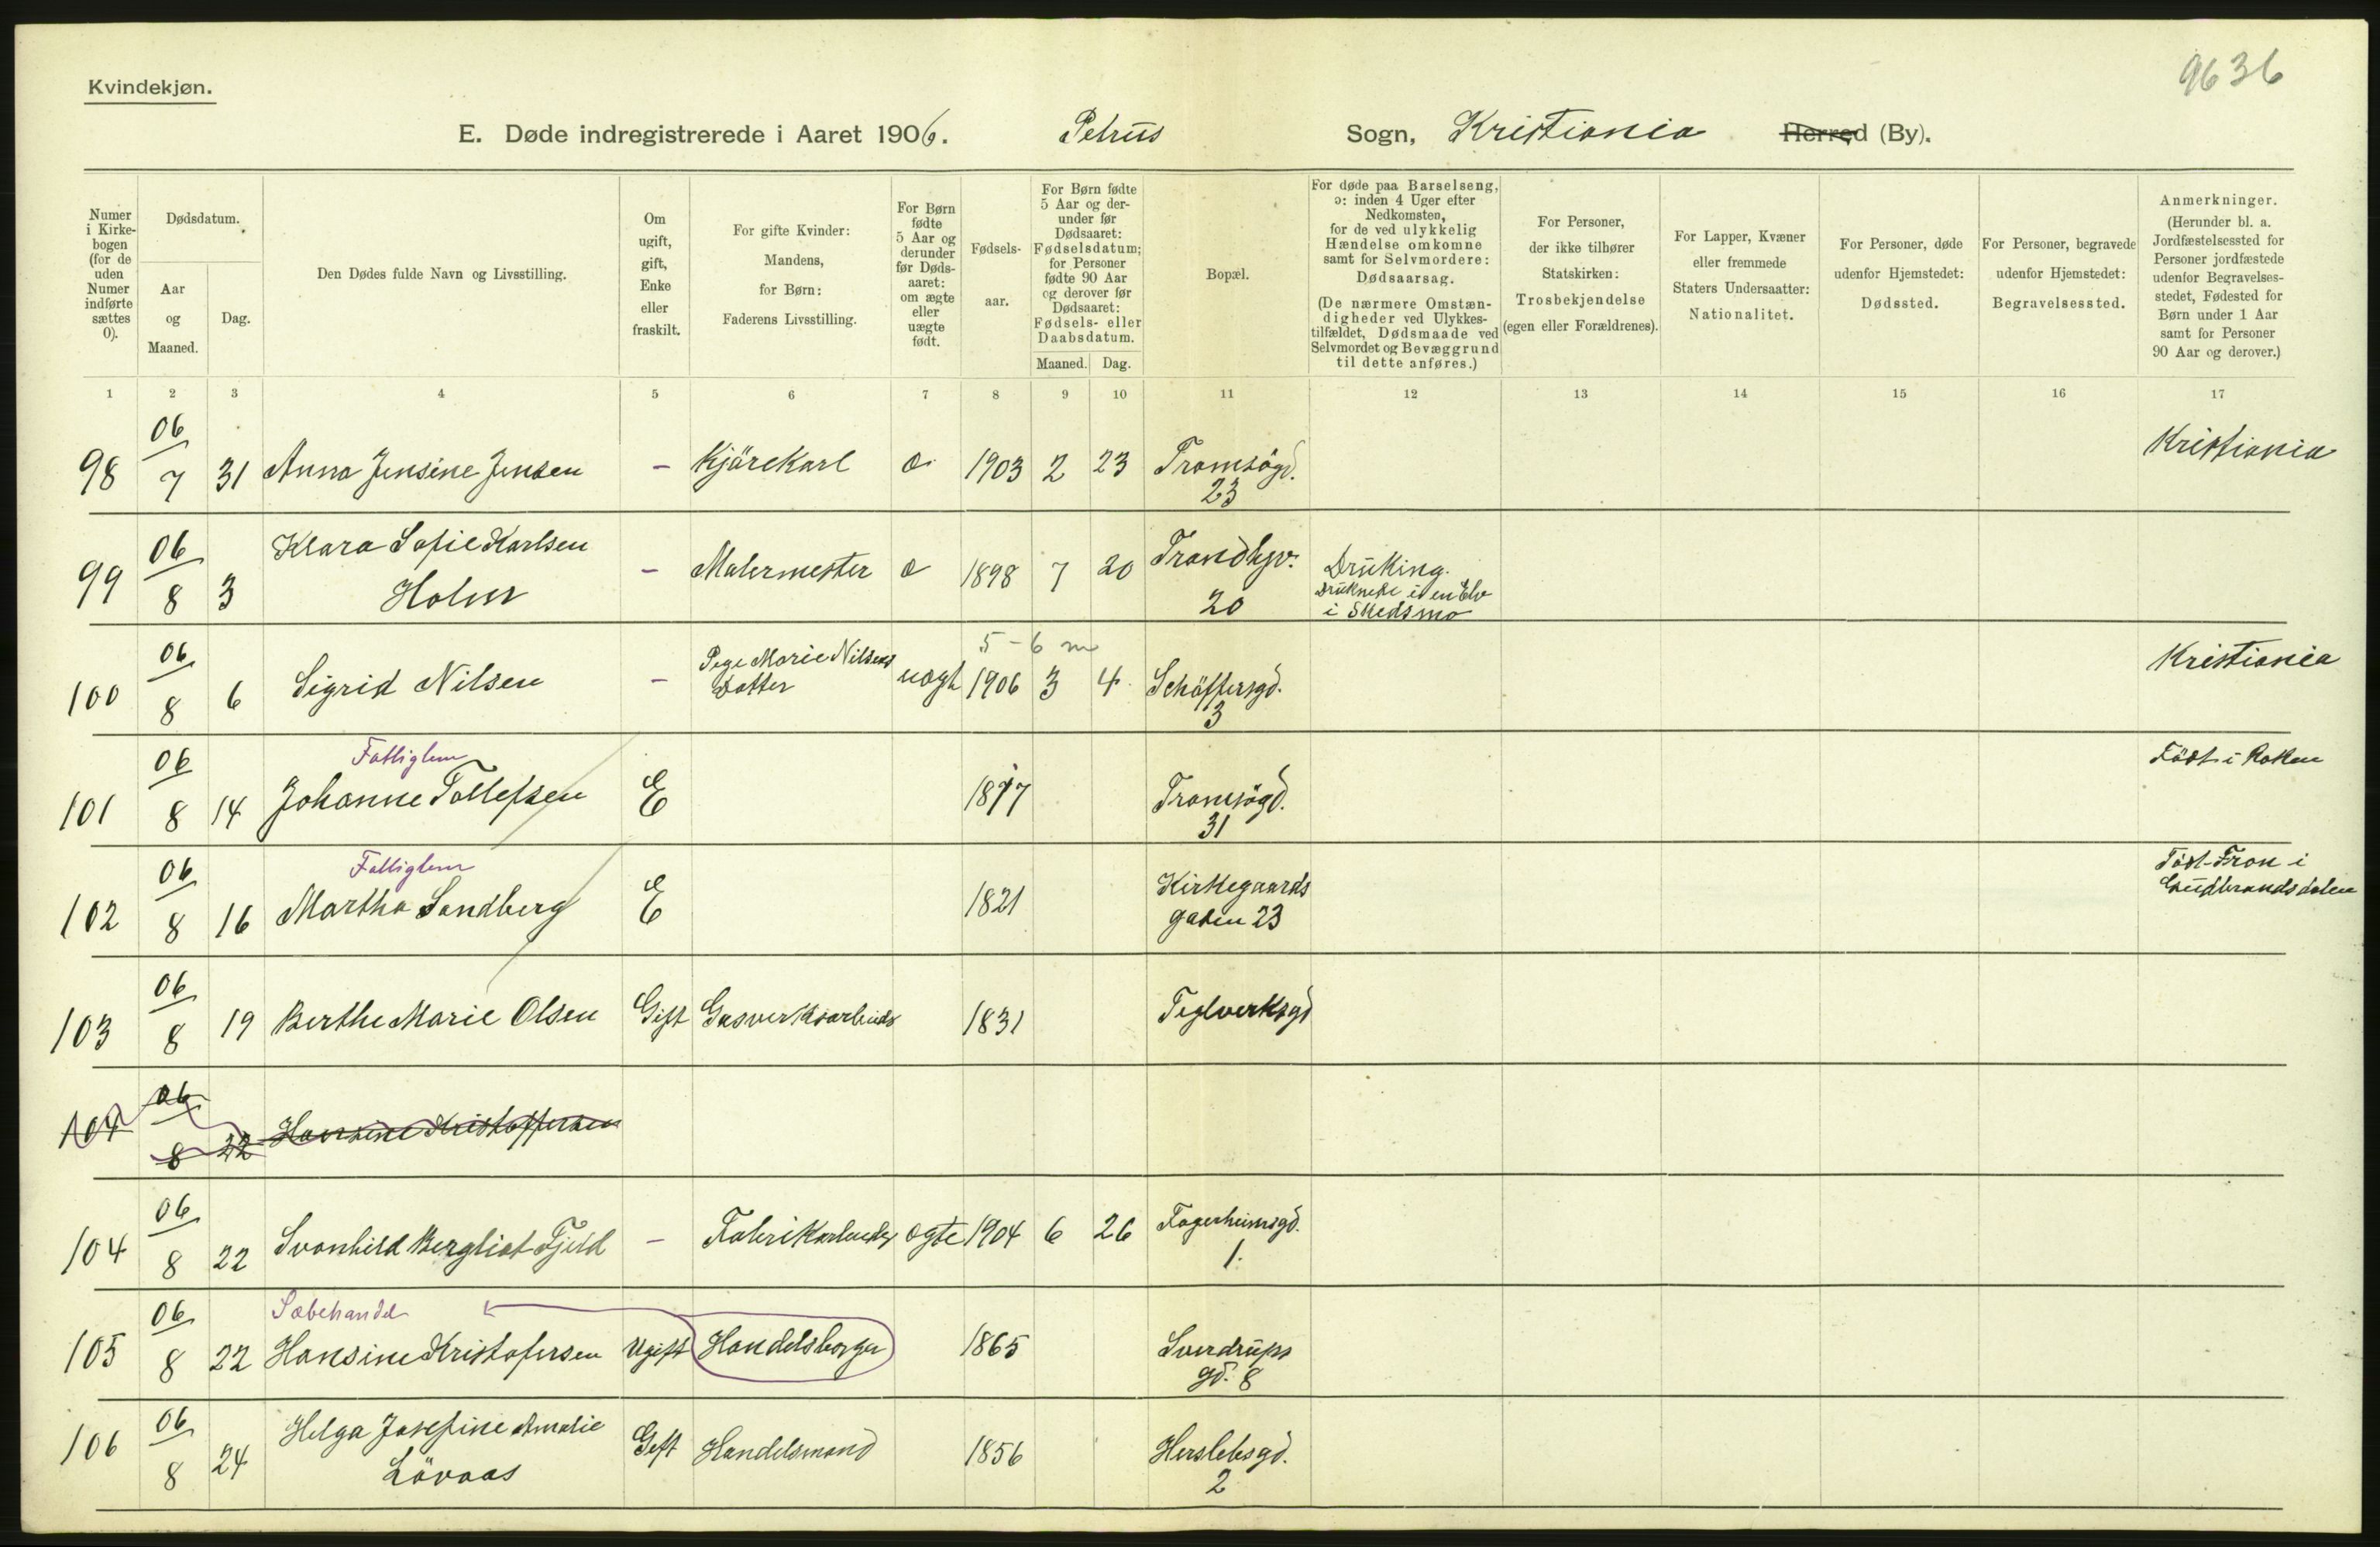 Kvindekjøn.
9636
E. Døde indregistrerede i Aaret 1906. Petrus Sogn, Kristiania Herred (By).
Numer i Kirkebogen (for de uden Numer indførte sættes 0).
Dødsdatum.
Aar og Maaned.
Dag.
Den Dødes fulde Navn og Livsstilling.
Om ugift, gift, Enke eller fraskilt.
For gifte Kvinder: Mandens, for Børn: Faderens Livsstilling.
For Børn fødte 5 Aar og derunder før Dødsaaret: om ægte eller uægte født.
Fødselsaar.
For Børn fødte 5 Aar og derunder før Dødsaaret: Fødselsdatum; for Personer fødte 90 Aar og derover før Dødsaaret: Fødsels- eller Daabsdatum.
Maaned. Dag.
Bopæl.
For døde paa Barselseng, ɔ: inden 4 Uger efter Nedkomsten, for de ved ulykkelig Hændelse omkomne samt for Selvmordere: Dødsaarsag.
(De nærmere Omstændigheder ved Ulykkestilfældet, Dødsmaade ved Selvmordet og Bevæggrund til dette anføres.)
For Personer, der ikke tilhører Statskirken: Trosbekjendelse (egen eller Forældrenes).
For Lapper, Kvæner eller fremmede Staters Undersaatter: Nationalitet.
For Personer, døde udenfor Hjemstedet: Dødssted.
For Personer, begravede udenfor Hjemstedet: Begravelsessted.
Anmerkninger.
(Herunder bl. a. Jordfæstelsessted for Personer jordfæstede udenfor Begravelsesstedet, Fødested for Børn under 1 Aar samt for Personer 90 Aar og derover.)
1 2 3 4 5 6 7 8 9 10 11 12 13 14 15 16 17
98 06/7 31 Anna Jensine Jensen – Kjörekarl 1903 2 23 Tromsögd. 23 Kristiania
99 06/8 3 Klara Sofie Karlsen Holm – Malermester 1898 7 20 Trondhjv. 20 Drukning. Druknede i en Elv i Skedsmo
5-6 m
100 06/8 6 Sigrid Nilsen – Pige Marie Nilsens Datter uægt 1906 3 4 Schöffersgd. 3 Kristiania
Fattiglem
101 06/8 14 Johanne Tollefsen E 1817 Tromsögd. 31 Födt i Röken
Fattiglem
102 06/8 16 Martha Sandberg E 1821 Kirkegaards gaden 23 Födt Fron i Gudbrandsdalen
103 06/8 19 Berthe Marie Olsen Gift Gasverksarbeider 1831 Teglverksgd
104 06/8 22 Hansine Kristoffersen
104 06/8 22 Svanhild Bergliot Fjeld – Fabrikarbeider ægte 1904 6 26 Fagerheimsgd. 1.
Sæbehandel
105 06/8 22 Hansine Kristofersen Ugift Handelsborger 1865 Sverdrups gd. 8
106 06/8 24 Helga Josefine Amalie Lövaas Gift Handelsmand 1856 Herslebsgd. 2